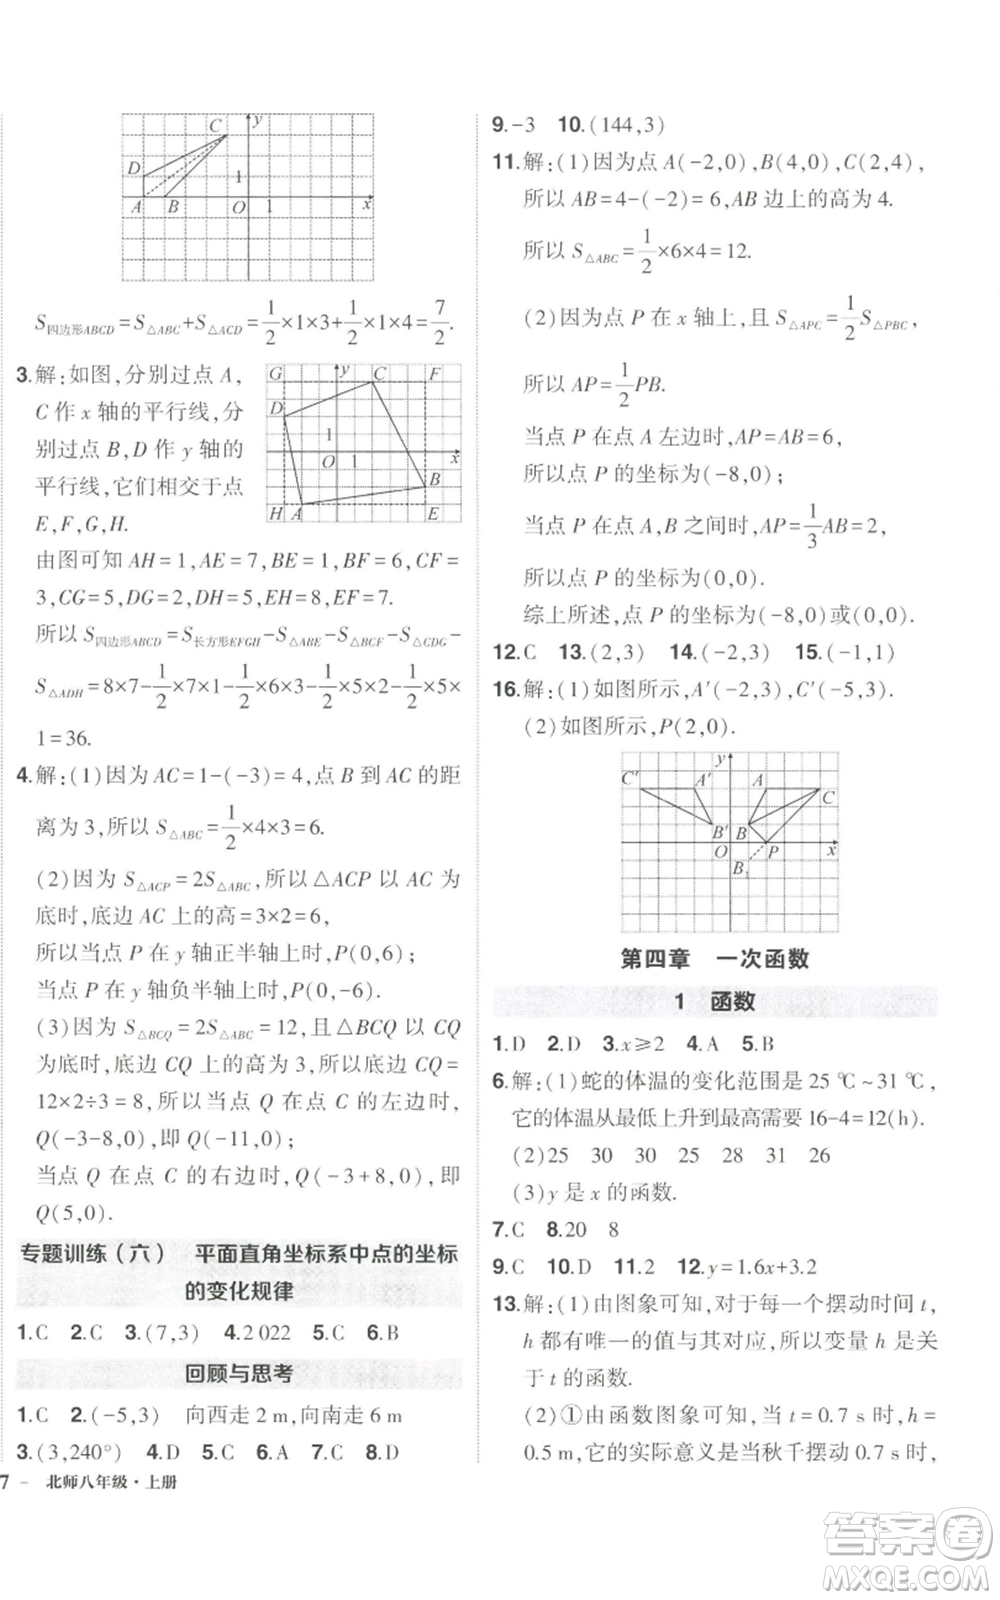 C y
D
1
A B O 1 x
S四边形ABCD=S△ABC+S△ACD=1/2×1×3+1/2×1×4=7/2.
3.解:如图,分别过点 A,
C 作 x 轴的平行线,分
别过点 B,D 作 y 轴的
平行线,它们相交于点
E,F,G,H.
G y C F
D
1
O 1 x
B
H A E
由图可知 AH=1,AE=7,BE=1,BF=6,CF=
3,CG=5,DG=2,DH=5,EH=8,EF=7.
所以 S四边形ABCD=S长方形EFGH-S△ABE-S△BCF-S△CDG-
S△ADH=8×7-1/2×7×1-1/2×6×3-1/2×5×2-1/2×5×
1=36.
4.解:(1)因为 AC=1-(-3)=4,点 B 到 AC 的距
离为 3,所以 S△ABC=1/2×4×3=6.
(2)因为 S△ACP=2S△ABC,所以△ACP 以 AC 为
底时,底边 AC 上的高=3×2=6,
所以当点 P 在 y 轴正半轴上时,P(0,6);
当点 P 在 y 轴负半轴上时,P(0,-6).
(3)因为 S△BCQ=2S△ABC=12,且△BCQ 以 CQ
为底时,底边 CQ 上的高为 3,所以 CQ=
12×2÷3=8,所以当点 Q 在点 C 的左边时,
Q(-3-8,0),即 Q(-11,0);
当点 Q 在点 C 的右边时,Q(-3+8,0),即
Q(5,0).
专题训练(六) 平面直角坐标系中点的坐标
的变化规律
1.C 2.C 3.(7,3) 4.2 022 5.C 6.B
回顾与思考
1.C 2.(-5,3) 向西走 2 m,向南走 6 m
3.(3,240°) 4.D 5.C 6.D 7.D 8.D
7 - 北师八年级·上册
9.-3 10.(144,3)
11.解:(1)因为点 A(-2,0),B(4,0),C(2,4),
所以 AB=4-(-2)=6,AB 边上的高为 4.
所以 S△ABC=1/2×6×4=12.
(2)因为点 P 在 x 轴上,且 S△APC=1/2S△PBC,
所以 AP=1/2PB.
当点 P 在点 A 左边时,AP=AB=6,
所以点 P 的坐标为(-8,0);
当点 P 在点 A,B 之间时,AP=1/3AB=2,
所以点 P 的坐标为(0,0).
综上所述,点 P 的坐标为(-8,0)或(0,0).
12.C 13.(2,3) 14.(-2,3) 15.(-1,1)
16.解:(1)如图所示,A′(-2,3),C′(-5,3).
(2)如图所示,P(2,0).
y
C′ A′ A C
B′ B
O P x
B₁
第四章 一次函数
1 函数
1.D 2.D 3.x≥2 4.A 5.B
6.解:(1)蛇的体温的变化范围是 25 ℃~31 ℃,
它的体温从最低上升到最高需要 16-4=12(h).
(2)25 30 30 25 31 26
(3)y 是 x 的函数.
7.C 8.20 8
9.C 10.D 11.2 12.y=1.6x+3.2
13.解:(1)由图象可知,对于每一个摆动时间 t,
h 都有唯一的值与其对应,所以变量 h 是关
于 t 的函数.
(2)①由函数图象可知,当 t=0.7 s 时,h=
0.5 m,它的实际意义是当秋千摆动 0.7 s 时,
答案卷
MXQE.COM